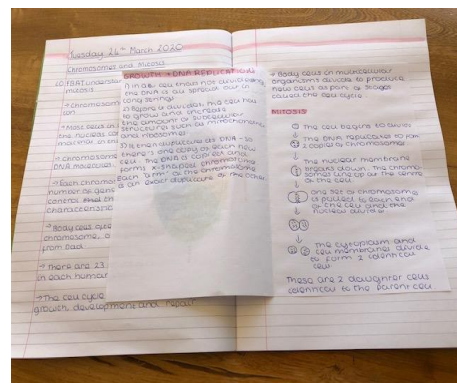 Tuesday 24th March 2020
Chromosomes and Mitosis
LO: I CAN understa
mitosis
→ Chromosom
→ Most cells in
the nucleus co
material in th
→ Chromosome
DNA molecules
→ Each chromo
number of gene
control the
characteristic
→ Body cells ofte
chromosome, o
from dad.
→ There are 23
in each human
→ The cell cycle
growth, development and repair
GROWTH + DNA REPLICATION
1) In a cell thats not dividing
the DNA is all spread out in
long strings
2) Before it divides, the cell has
to grow and increase
the amount of subcellular
structures such as mitochondria
and ribosomes
3) It then duplicates its DNA - so
there's one copy for each new
cell. The DNA is copied and
forms X-shaped chromosomes
Each "arm" of the chromosome
is an exact duplicate of the other
→ Body cells in multicellular
organisms divide to produce
new cells as part of stages
called the cell cycle
MITOSIS
The cell begins to divide
The DNA replicates to form
2 copies of chromosomes
The nuclear membrane
breaks down. The chromo-
somes line up at the centre
of the cell
One set of chromosomes
is pulled to each end
of the cell and the
nucleus divides
The cytoplasm and
cell membranes divide
to form 2 identical
cells
These are 2 daughter cells
identical to the parent cell.